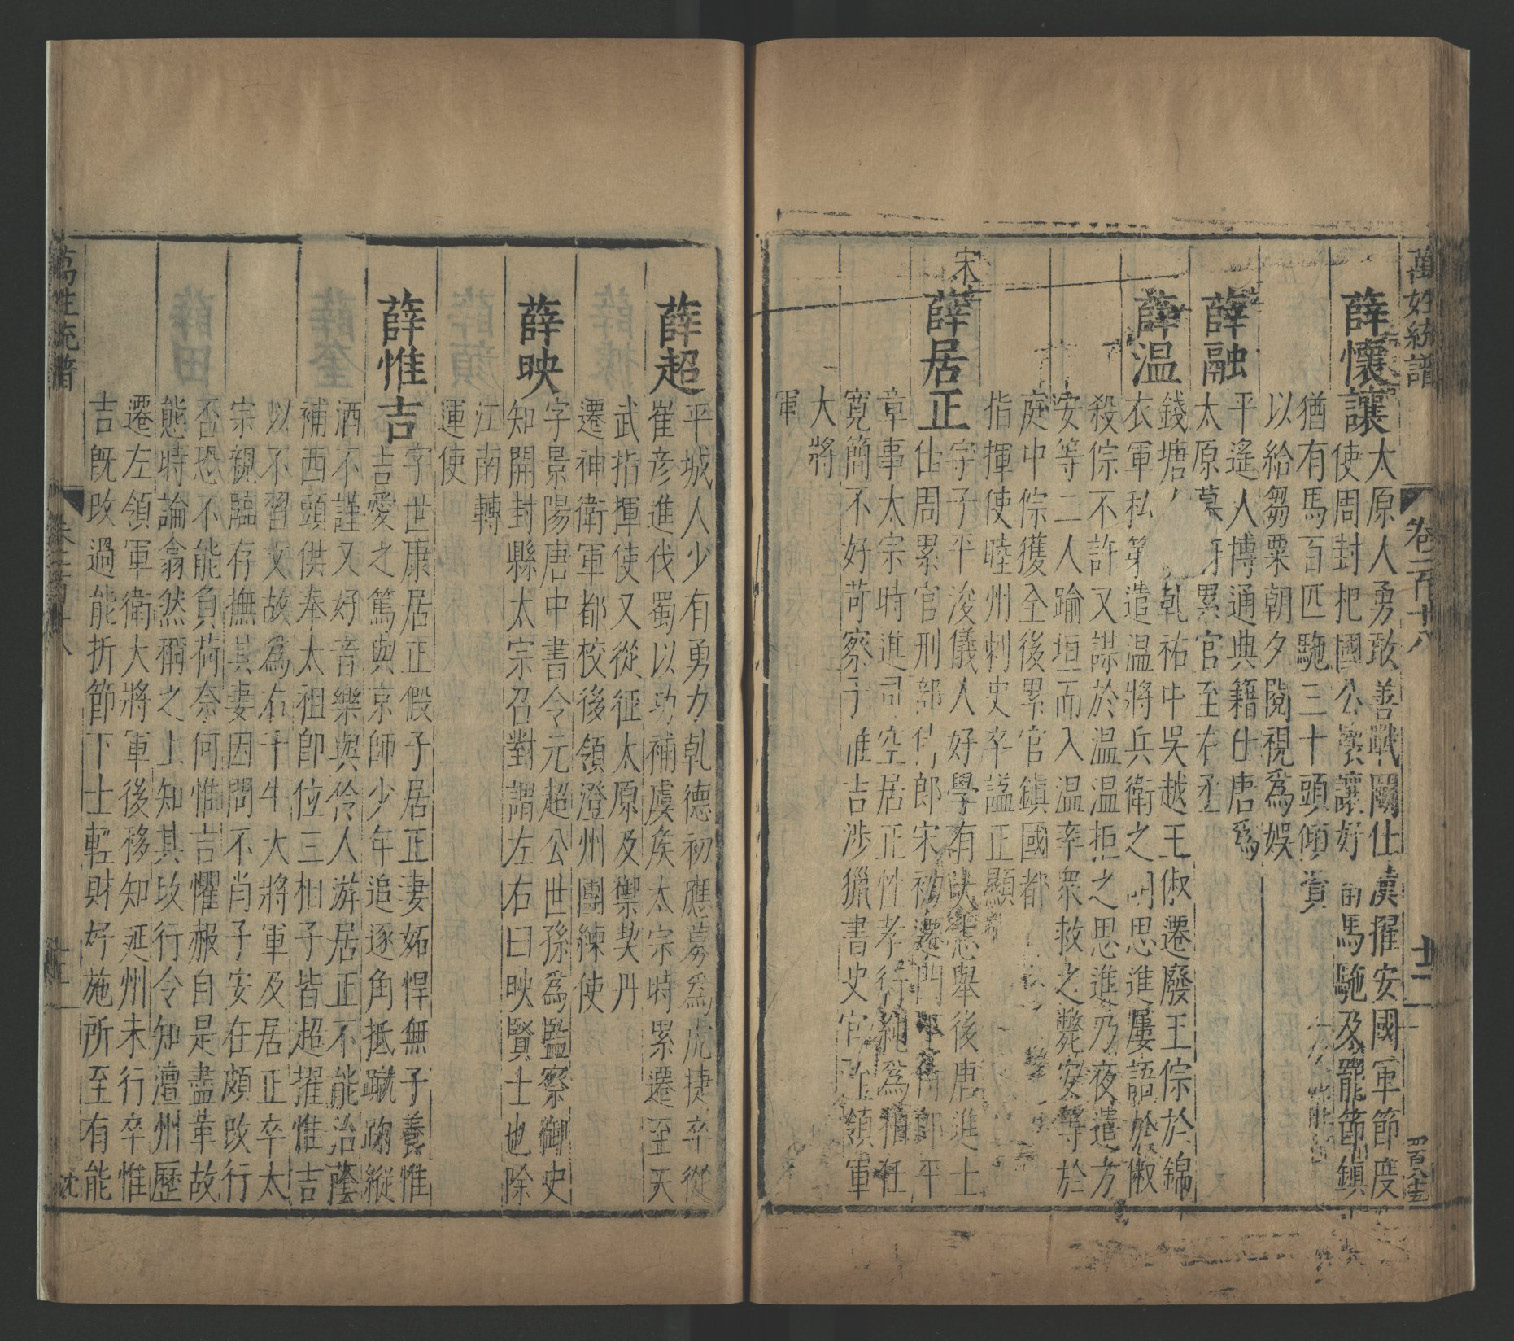 萬姓統譜
卷一百十八
廿二
薛懷讓
太原人勇敢善戰屬仕漢擢安國軍節度
使周封杞國公懷讓好馬駞及罷節鎮
猶有馬百匹駞三十頭傾資
以給芻粟朝夕閱視為娛
薛融
平遙人博通典籍仕唐爲
太原幕 累官至右丞
薛温
錢塘人 乾祐中吳越王俶遷廢王倧於錦
衣軍私第遣温將兵衛之胡思進屢請於俶
殺倧不許又謀於温温拒之思進乃夜遣方
安等二人踰垣而入温率衆救之斃安等於
庭中倧獲全後累官鎮國都
指揮使睦州刺史卒謚正顯
宋
薛居正
字子平浚儀人好學有 舉後唐進士
仕周累官刑部侍郎宋初遷門 郎平
章事太宗時進司空居正性孝行純 任
寬簡不好苛察子惟吉涉獵書史官 領軍
大將
軍
薛超
平城人少有勇力乾德初應募爲虎捷卒從
崔彦進伐蜀以功補虞候太宗時累遷至天
武指揮使又從征太原及禦契丹
遷神衛軍都校後領澄州團練使
薛映
字景陽唐中書令元超公世孫爲監察御史
知開封縣太宗召對謂左右曰映賢士也除
江南轉
運使
薛惟吉
字世康居正假子居正妻妬悍無子養惟
吉愛之篤與京師少年追逐角抵蹴踘縱
酒不謹又好音樂與伶人游居正不能治蔭
補西頭供奉太祖即位三相子皆超擢惟吉
以不習文故爲右千牛大將軍及居正卒太
宗親臨存撫其妻因問不肖子安在頗改行
否恐不能負荷奈何惟吉懼赧自是盡革故
態時論翕然稱之上知其改行令知澶州歷
遷左領軍衛大將軍後移知延州未行卒惟
吉旣改過能折節下士輕財好施所至有能
萬姓統譜